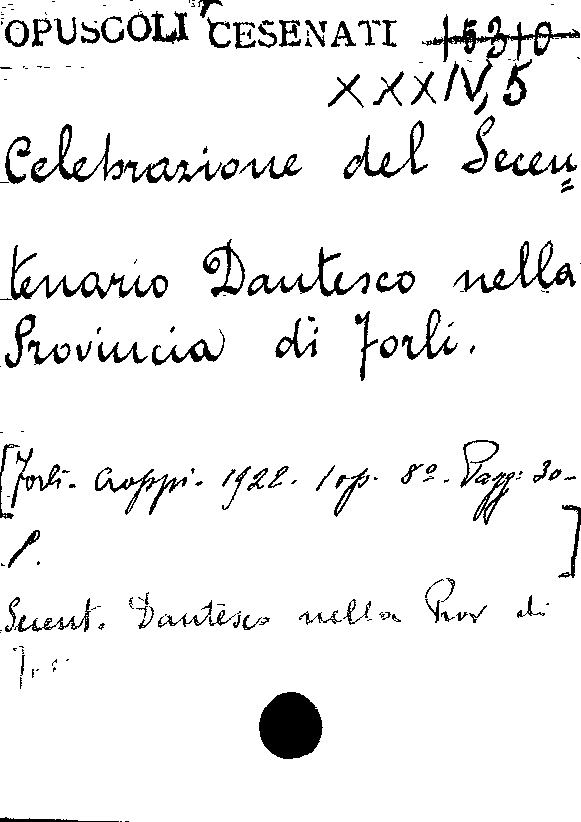 OPUSCOLI CESENATI 15310
XXXIV, 5
Celebrazione del Secen=
tenario Dantesco nella
Provincia di Forlì.
[Forlì. Croppi. 1922. 1 op. 8º. Pagg: 30-
P. ]
Secent. Dantesco nella Prov di